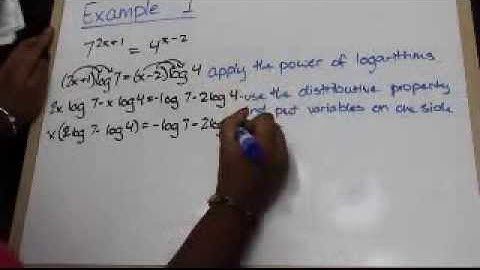 Example 1
7^(2x+1) = 4^(x-2)
(2x+1)log 7=(x-2)log 4 apply the power of logarithms
2x log 7-x log 4=-log 7-2log 4-use the distributive property
and put variables on one side
x(2log 7-log 4)=-log 7-2log